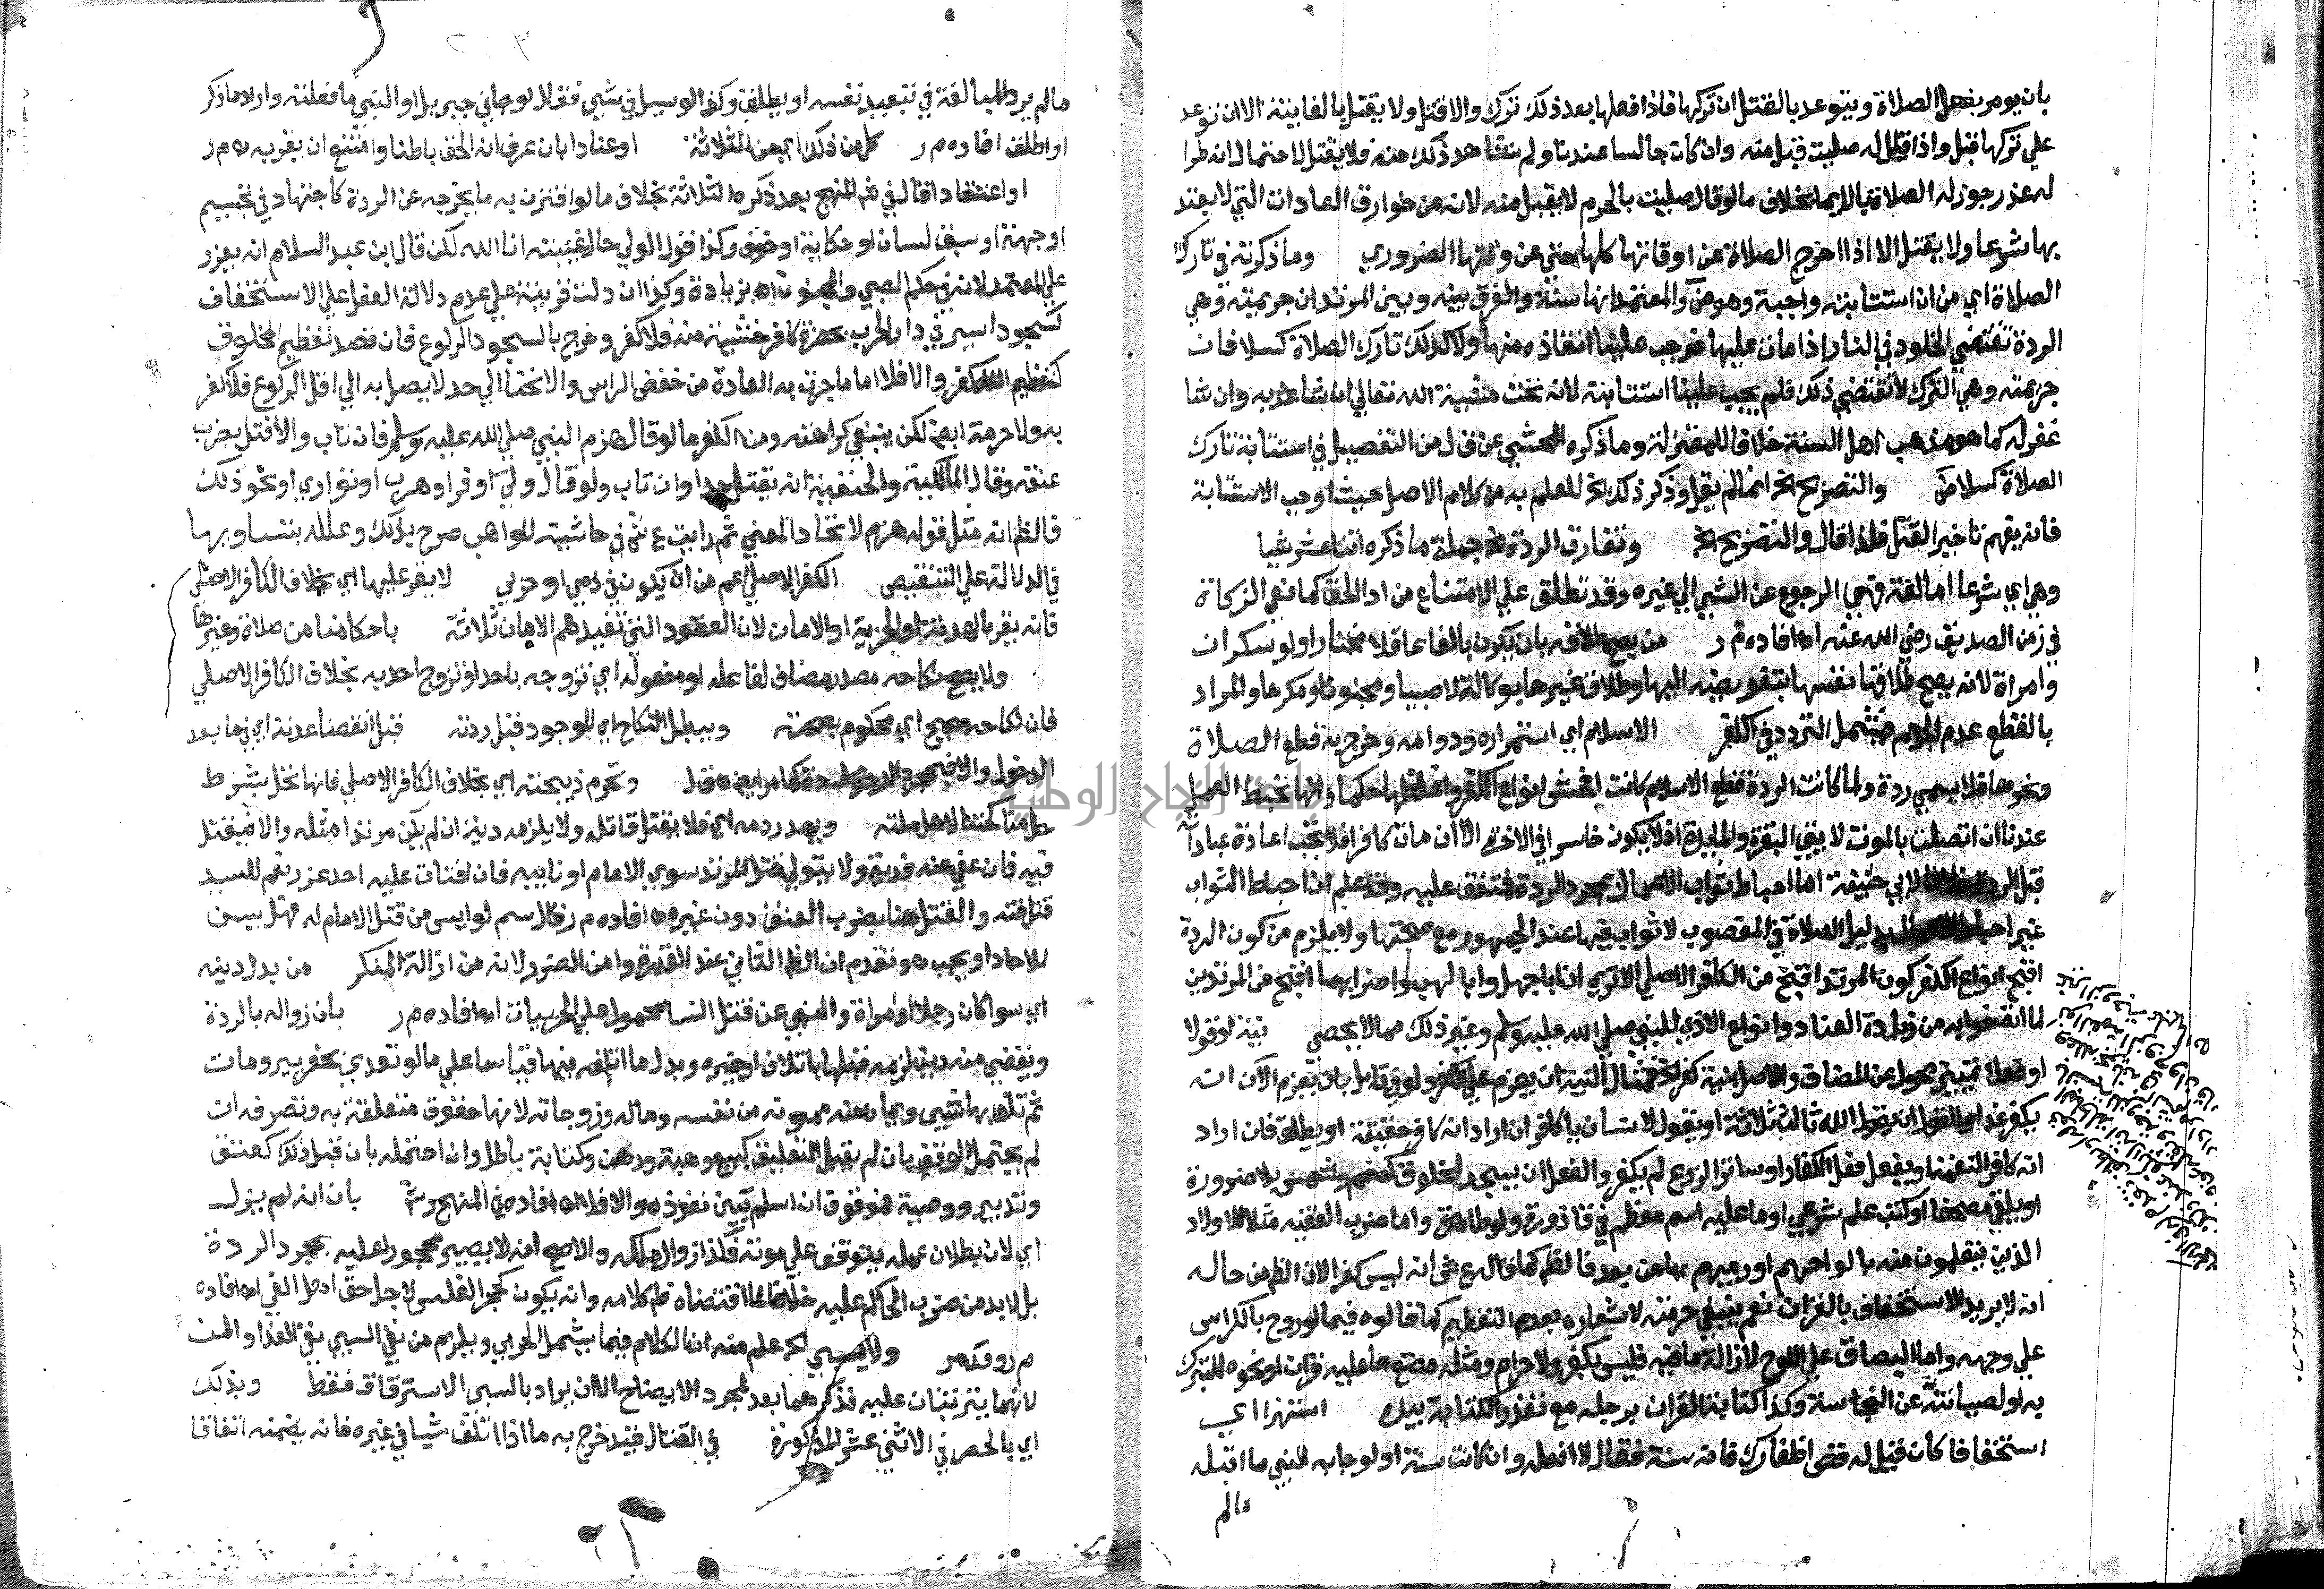 بان يومر بفعل الصلاة ويتوعد بالقتل ان تركها فاذا فعلها بعد ذلك ترك والا قتل ولا يقتل بالفايتة الا ان توعد
علي تركها قبل واذا قيل له صليت قبل منه وان كان جالسا عندنا ولم نشاهد ذلك منه فلا يقتل لاحتمال انه طرا
له عذر جوز له الصلاة بالايما بخلاف ما لو قال صليت بالحرم لا يقبل منه لانه من خوارق العادات التي لا يعتد
بها شرعا ولا يقتل الا اذا اخرج الصلاة عن اوقاتها كلها حتي عن وقتها الضروري وما ذكرته في تارك
الصلاة اي من ان استتابته واجبة وهو ض والمعتمد انها سنة والفرق بينه وبين المرتد ان جريمته وهي
الردة تقتضي الخلود في النار اذا مات عليها فوجب علينا انقاذه منها ولا كذلك تارك الصلاة كسلا فان
جريمته وهي الترك لا تقتضي ذلك فلم يجب علينا استتابته لانه تحت مشيئة الله تعالي ان شا عذبه وان شا
غفر له كما هو مذهب اهل السنة خلافا للمعتزلة وما ذكره المحشي عن ق ل من التفصيل في استتابة تارك
الصلاة كسلا ض والتصريح الخ انما لم يقل وذكر ذلك الخ للعلم به من كلام الاصل حيث اوجب الاستتابة
فانه يفهم تاخير القتل فلذا قال والتصريح الخ وتفارق الردة الخ جملة ما ذكره اثنا عشر شيا
وهي اي شرعا اما لغة فهي الرجوع عن الشي الي غيره وقد تطلق علي الامتناع من ادا الحق كمانعي الزكاة
في زمن الصديق رضي الله عنه اه افاده م ر من يصح طلاقه بان يكون بالغا عاقلا مختارا ولو سكران
وامراة لانه يصح طلاقها نفسها بتفويضه اليها وطلاق غيرها بوكالة لا صبيا ومجنونا ومكرها والمراد
بالقطع عدم الجزم فيشمل التردد في الكفر الاسلام اي استمراره ودوامه وخرج به قطع الصلاة
ونحوها فلا يسمي ردة ولما كانت الردة قطع الاسلام كانت افحش انواع الكفر واغلظها حكما وانها تحبط العمل
عندنا ان اتصلت بالموت لايتي البقرة والمايدة اذ لا يكون خاسرا في الاخرة الا ان مات كافرا فلا تجب اعادة عباداته
قبل الردة خلافا لابي حنيفة اما احباط ثواب الاعمال بمجرد الردة فمتفق عليه وقد علم ان احباط الثواب
غير احباط بدليل الصلاة في المغصوب لا ثواب فيها عند الجمهور مع صحتها ولا يلزم من كون الردة
اقبح انواع الكفر كون المرتد اقبح من الكافر الاصلي الا تري ان ابا جهل وابا لهب واضرابهما اقبح من المرتدين
لما انضم اليه من زيادة العناد وانواع الاذي للنبي صلي الله عليه وسلم وغير ذلك مما لا يحصي نية او قولا
او فعلا تمييز محول عن المضاف والاصل نية كفر الخ فمثال النية ان يعزم علي الكفر ولو في قابل بان يعزم الان ان
يكفر غدا او القول ان يقول الله ثالث ثلاثة او يقول لانسان يا كافر ان اراد انه كافر حقيقة او يطلق فان اراد
انه كافر النعمة او يفعل فعل الكفار او ساتر الزرع لم يكفر والفعل ان يسجد لمخلوق كصنم وشمس بلا ضرورة
او يلقي مصحفا او كتب علم شرعي او ما عليه اسم معظم في قاذورة ولو طاهرة واما ضرب الفقيه مثلا للاولاد
الذين يتعلمون منه بالواحهم او رميهم بها من بعد فالظم كما قاله ع ش انه ليس كفرا لان الظم من حاله
انه لا يريد الاستخفاف بالقران نعم ينبغي حرمته لاشعاره بعدم التعظيم كما قالوه فيما لو روح بالكراس
علي وجهه واما البصاق علي اللوح لازالة ما فيه فليس بكفر ولا حرام ومثله مضغ ما عليه قران او نحوه للتبرك
به او لصيانته عن النجاسة وكذا كتابة القران برجله مع تعذر الكتابة بيده استهزا اي
استخفافا كان قيل له قص اظفارك فانه سنة فقال لا افعله وان كانت سنة او لو جا به النبي ما اقبله
مالم
مالم يرد المبالغة في تبعيد نفسه او يطلق وكذا لو سيل في شي فقال لو جاني جبريل او النبي ما فعلته واراد ما ذكر
او اطلق افاده م ر كل من ذلك اي من الثلاثة او عنادا بان عرف انه الحق باطنا وامتنع ان يقر به اه م ر
او اعتقادا قال في ثم المنهج بعد ذكره الثلاثة بخلاف ما لو اقترن به ما يخرجه عن الردة كاجتهاد في تجسيم
او جهته او سبق لسان او حكاية او خوف وكذا قول الولي حال غيبته انا الله لكن قال ابن عبد السلام انه يعزر
علي المعتمد لانه في حكم الصبي والمجنون اه بزيادة وكذا ان دلت قرينة علي عدم دلالة الفعل علي الاستخفاف
كسجود اسير في دار الحرب بحضرة كافر خشية منه فلا كفر وخرج بالسجود الركوع فان قصد تعظيم مخلوق
كتعظيم الله كفر والا فلا اما ما جرت به العادة من خفض الراس والانحنا الي حد لا يصل به الي اقل الركوع فلا كفر
به ولا حرمة ايضا لكن ينبغي كراهته ومن الكفر ما لو قال هزم النبي صلي الله عليه وسلم فان تاب والا قتل بضرب
عنقه وقال المالكية والحنفية انه يقتل حدا وان تاب ولو قال ولي او فر او هرب او تواري او نحو ذلك
فالظم انه مثل قوله هزم لاتحاد المعني ثم رايت ع ش في حاشيته للمواهب صرح بذلك وعلله بتساويها
في الدلالة علي التنقيص الكفر الاصلي اعم من ان يكون في ذمي او حربي لا يقر عليها اي بخلاف الكافر الاصلي
فانه يقر بالهدنة او الجزية او الامان لان العقود التي تفيدهم الامان ثلاثة باحكامنا من صلاة وغيرها
ولا يصح نكاحه مصدر مضاف لفاعله او مفعوله اي تزوجه باحد او تزوج احد به بخلاف الكافر الاصلي
فان نكاحه صحيح اي محكوم بصحته ويبطل النكاح اي الموجود قبل ردته قبل انقضا عدته اي فيما بعد
الدخول والا فبمجرد الردة كما مر ايضا اه ق ل وتحرم ذبيحته اي بخلاف الكافر الاصلي فانها تحل بشرط
حل مناكحتنا لاهل ملته ويهدر دمه اي فلا يقتل قاتله ولا يلزمه دية ان لم يكن مرتدا مثله والا فيقتل
فيه فان عفي عنه فدية ولا يتولي قتل المرتد سوي الامام او نايبه فان افتات عليه احد عزر نعم للسيد
قتل قنه والقتل هنا بضرب العنق دون غيره اه افاده م ر قال سم لو ايس من قتل الامام له فهل يسن
للاحاد او يجب اه وتقدم ان الظم الثاني عند القدرة وامن الضرر لانه من ازالة المنكر من بدل دينه
اي سوا كان رجلا او امراة والنهي عن قتل النسا محمول علي الحربيات اه افاده م ر بان زواله بالردة
ويقضي منه دين لزمه قبلها باتلاف او غيره وبدل ما اتلفه فيها قياسا علي ما لو تعدي بحفر بير ومات
ثم تلف بها شي ويمان منه ممونه من نفسه وماله وزوجاته لانها حقوق متعلقة به وتصرفه ان
لم يحتمل الوقف بان لم يقبل التعليق كبيع وهبة ورهن وكتابة باطل وان احتمله بان قبل ذلك كعتق
وتدبير ووصية موقوف ان اسلم تبين نفوذه والا فلا اه افاده في المنهج وش بان انه لم يزل
اي لان بطلان عمله يتوقف علي موته فكذا زوال ملكه والاصح انه لا يصير محجورا عليه بمجرد الردة
بل لابد من ضرب الحاكم عليه خلافا لما اقتضاه ظم كلامه وانه يكون كحجر الفلس لاجل حق اهل الفي اه افاده
م ر وقد مر ولا يسبي الخ علم منه ان الكلام فيما يشمل الحربي ويلزم من نفي السبي نفي الفدا والمن
لانهما يترتبان عليه فذكرهما بعد لمجرد الايضاح الا ان يراد بالسبي الاسترقاق فقط وبذلك
اي بالحصر في الاثني عشر المذكورة في القتال قيد خرج به ما اذا اتلف شيا في غيره فانه يضمنه اتفاقا